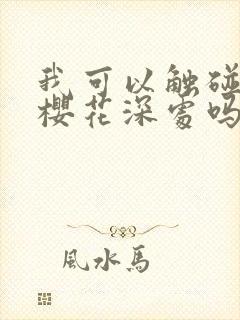 我可以触碰
樱花深處吗
風水馬